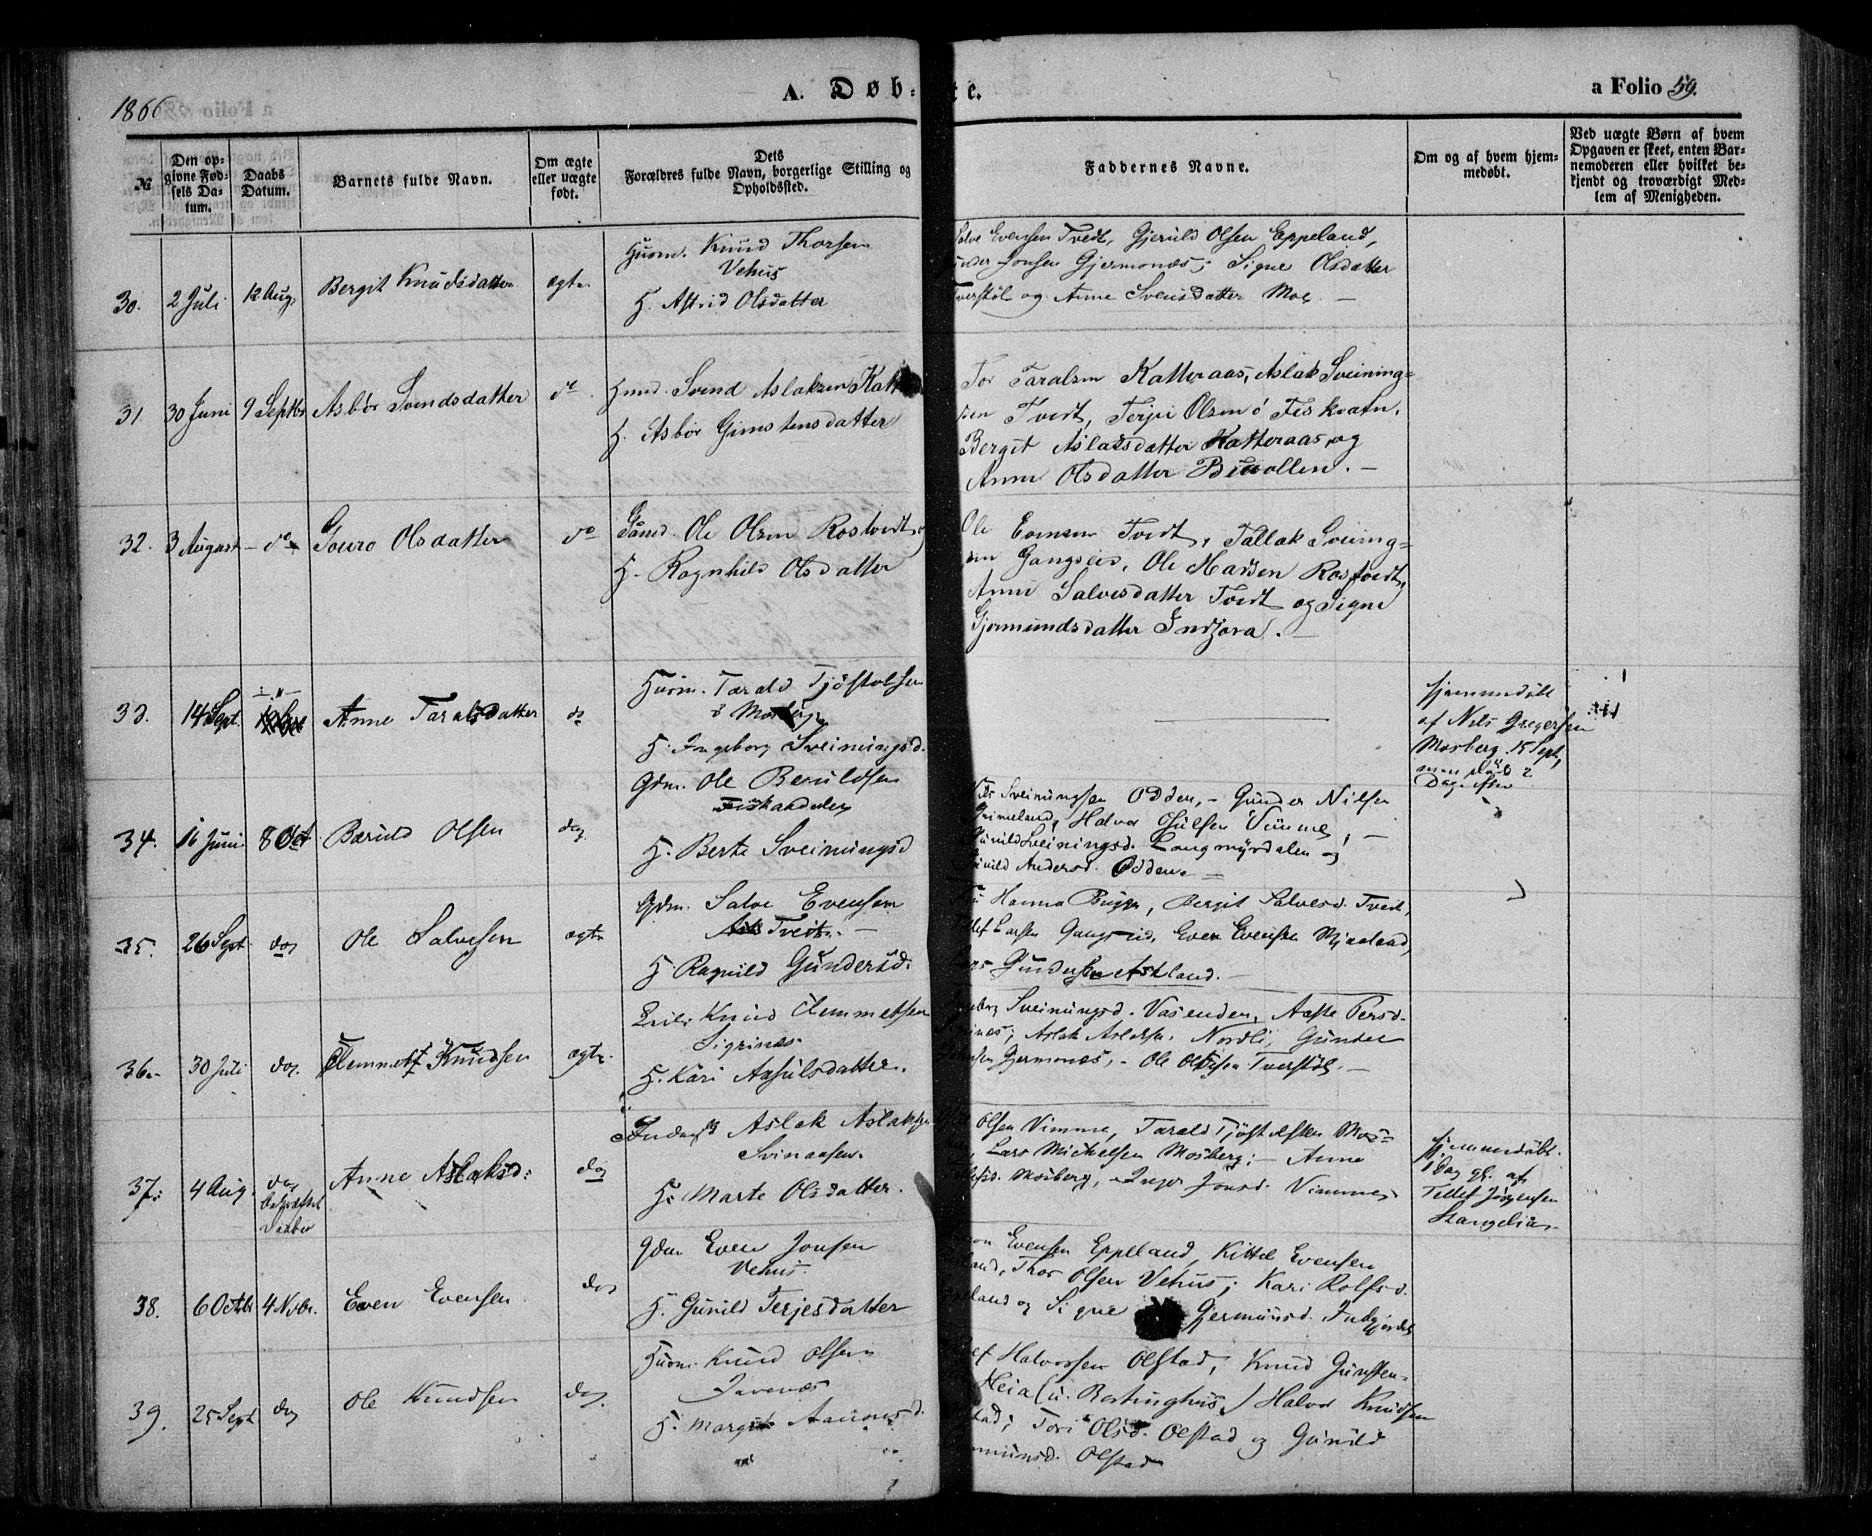 1866
A. Døb:
te.
a Folio 59.
№
Den opgivne Fødsels Datum.
Daabs Datum.
Barnets fulde Navn.
Om ægte eller uægte født.
Dets Forældres fulde Navn, borgerlige Stilling og Opholdssted.
Faddernes Navne.
Om og af hvem hjemmedøbt.
Ved uægte Børn af hvem Opgaven er skeet, enten Barnemoderen eller hvilket bekjendt og troværdigt Medlem af Menigheden.
30. 2 Juli 12 Aug. Bergit Knudsdatter ægte
Huusm. Knud Thorsen
Vehus
H. Astrid Olsdatter
Salve Evensen Tvedt, Gjeruld Olsen Eppeland,
Jonsen Gjermonæs; Signe Olsdatter
Tverstøl og Anne Svensdatter Moe. —
31. 30 Juni 9 Septbr Asbør Svendsdatter do
Svend Aslaksen
H. Asbør Gunstensdatter
Tor Taralsen Katteraas, Aslak Sveining=
sen Tvedt, Terje Olsen Fiskvatn,
Bergit Aslaksdatter Katteraas, og
Anne Olsdatter Bievollen. —
32. 3 August do Gouro Olsdatter do
Gaard. Ole Olsen Rostvedt
H. Ragnhild Olsdatter
Ole Evensen Tvedt, Tallak Sveining=
sen Gangseid, Ole Madsen Rostvedt,
Anne Salvesdatter Tvedt og Signe
Gjermundsdatter
33. 14 Sept. Anne Taralsdatter do
Huusm. Tarald Tjøstolsen
Mosberg
H. Ingeborg Sveinungsd.
hjemmedøbt
af Nils Gregersen
Mosberg 15 Sept,
men død
Dag efter
34. 16 Juni 8 Oct. Bæruld Olsen do
Gdm. Ole Beruldsen
Fiskandalen
H. Berte Sveinungsd
Nils Sveinungsen Odden, - Gunder Nilsen
Grimeland, Halvor Vimme, —
Gunild Sveinungsd. Langmyrdalen og
Gunild Andersd. Odden. —
35. 26 Sept. do Ole Salvesen ægte
Gdm. Salve Evensen
Tveit. —
H. Ragnild Gundersd.
Hanna Bugge, Bergit Salvesd. Tveit,
Larsen Gangseid, Even Evensen Mjaaland,
Gundersen Askland. —
36. 30 Juli do. Clemmet Knudsen ægte.
Knud Clemmetsen
Sigrinæs.
H. Kari Aasulsdatter.
Sveinungsd. Vasenden, Aaste Persd.
Aslak Aslaksen Nordli, Gunder
Jonsen Gjermonæs, - Ole Olsen Tverstøl. —
37. 4 Aug. do Anne Aslaksd: do
bekræftet
Daaben
Aslak Aslaksen
Svinaasen.
H. Marte Olsdatter.
Olsen Vimme, Tarald Tjøstolsen Mos=
Lars Michelsen Mosberg; — Anne
Mosberg, Inger Jonsd. Vimme,
hjemmedøbt
af
Tellef Jørgensen
Stangelia.
38. 6 Octbr 4 Novbr. Even Evensen do
Gdm Even Jonsen
Vehus.
H. Gunild Terjesdatter
Evensen Eppeland, Kittel Evensen
Thor Olsen Vehus; Kari Rolfsd.
og Signe Gjermunsd.
39. 25 Sept. do Ole Knudsen do.
Huusm. Knud Olsen
H. Margit Aanonsd.
Halvorsen Ølstad, Knud Gunsten-
Heia Halvor Knudsen
Tori Olsd. Ølstad og Gunild
Ølstad